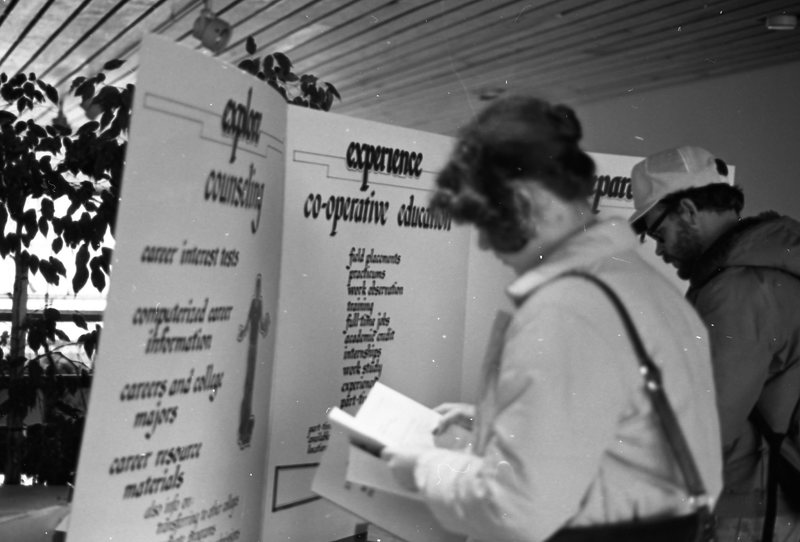 explore
counseling
career interest tests
computerized career
information
careers and college
majors
career resource
materials
also info on:
transferring to other colleges
experience
co-operative education
field placements
practicums
work observation
training
full-time jobs
academic credit
internships
work study